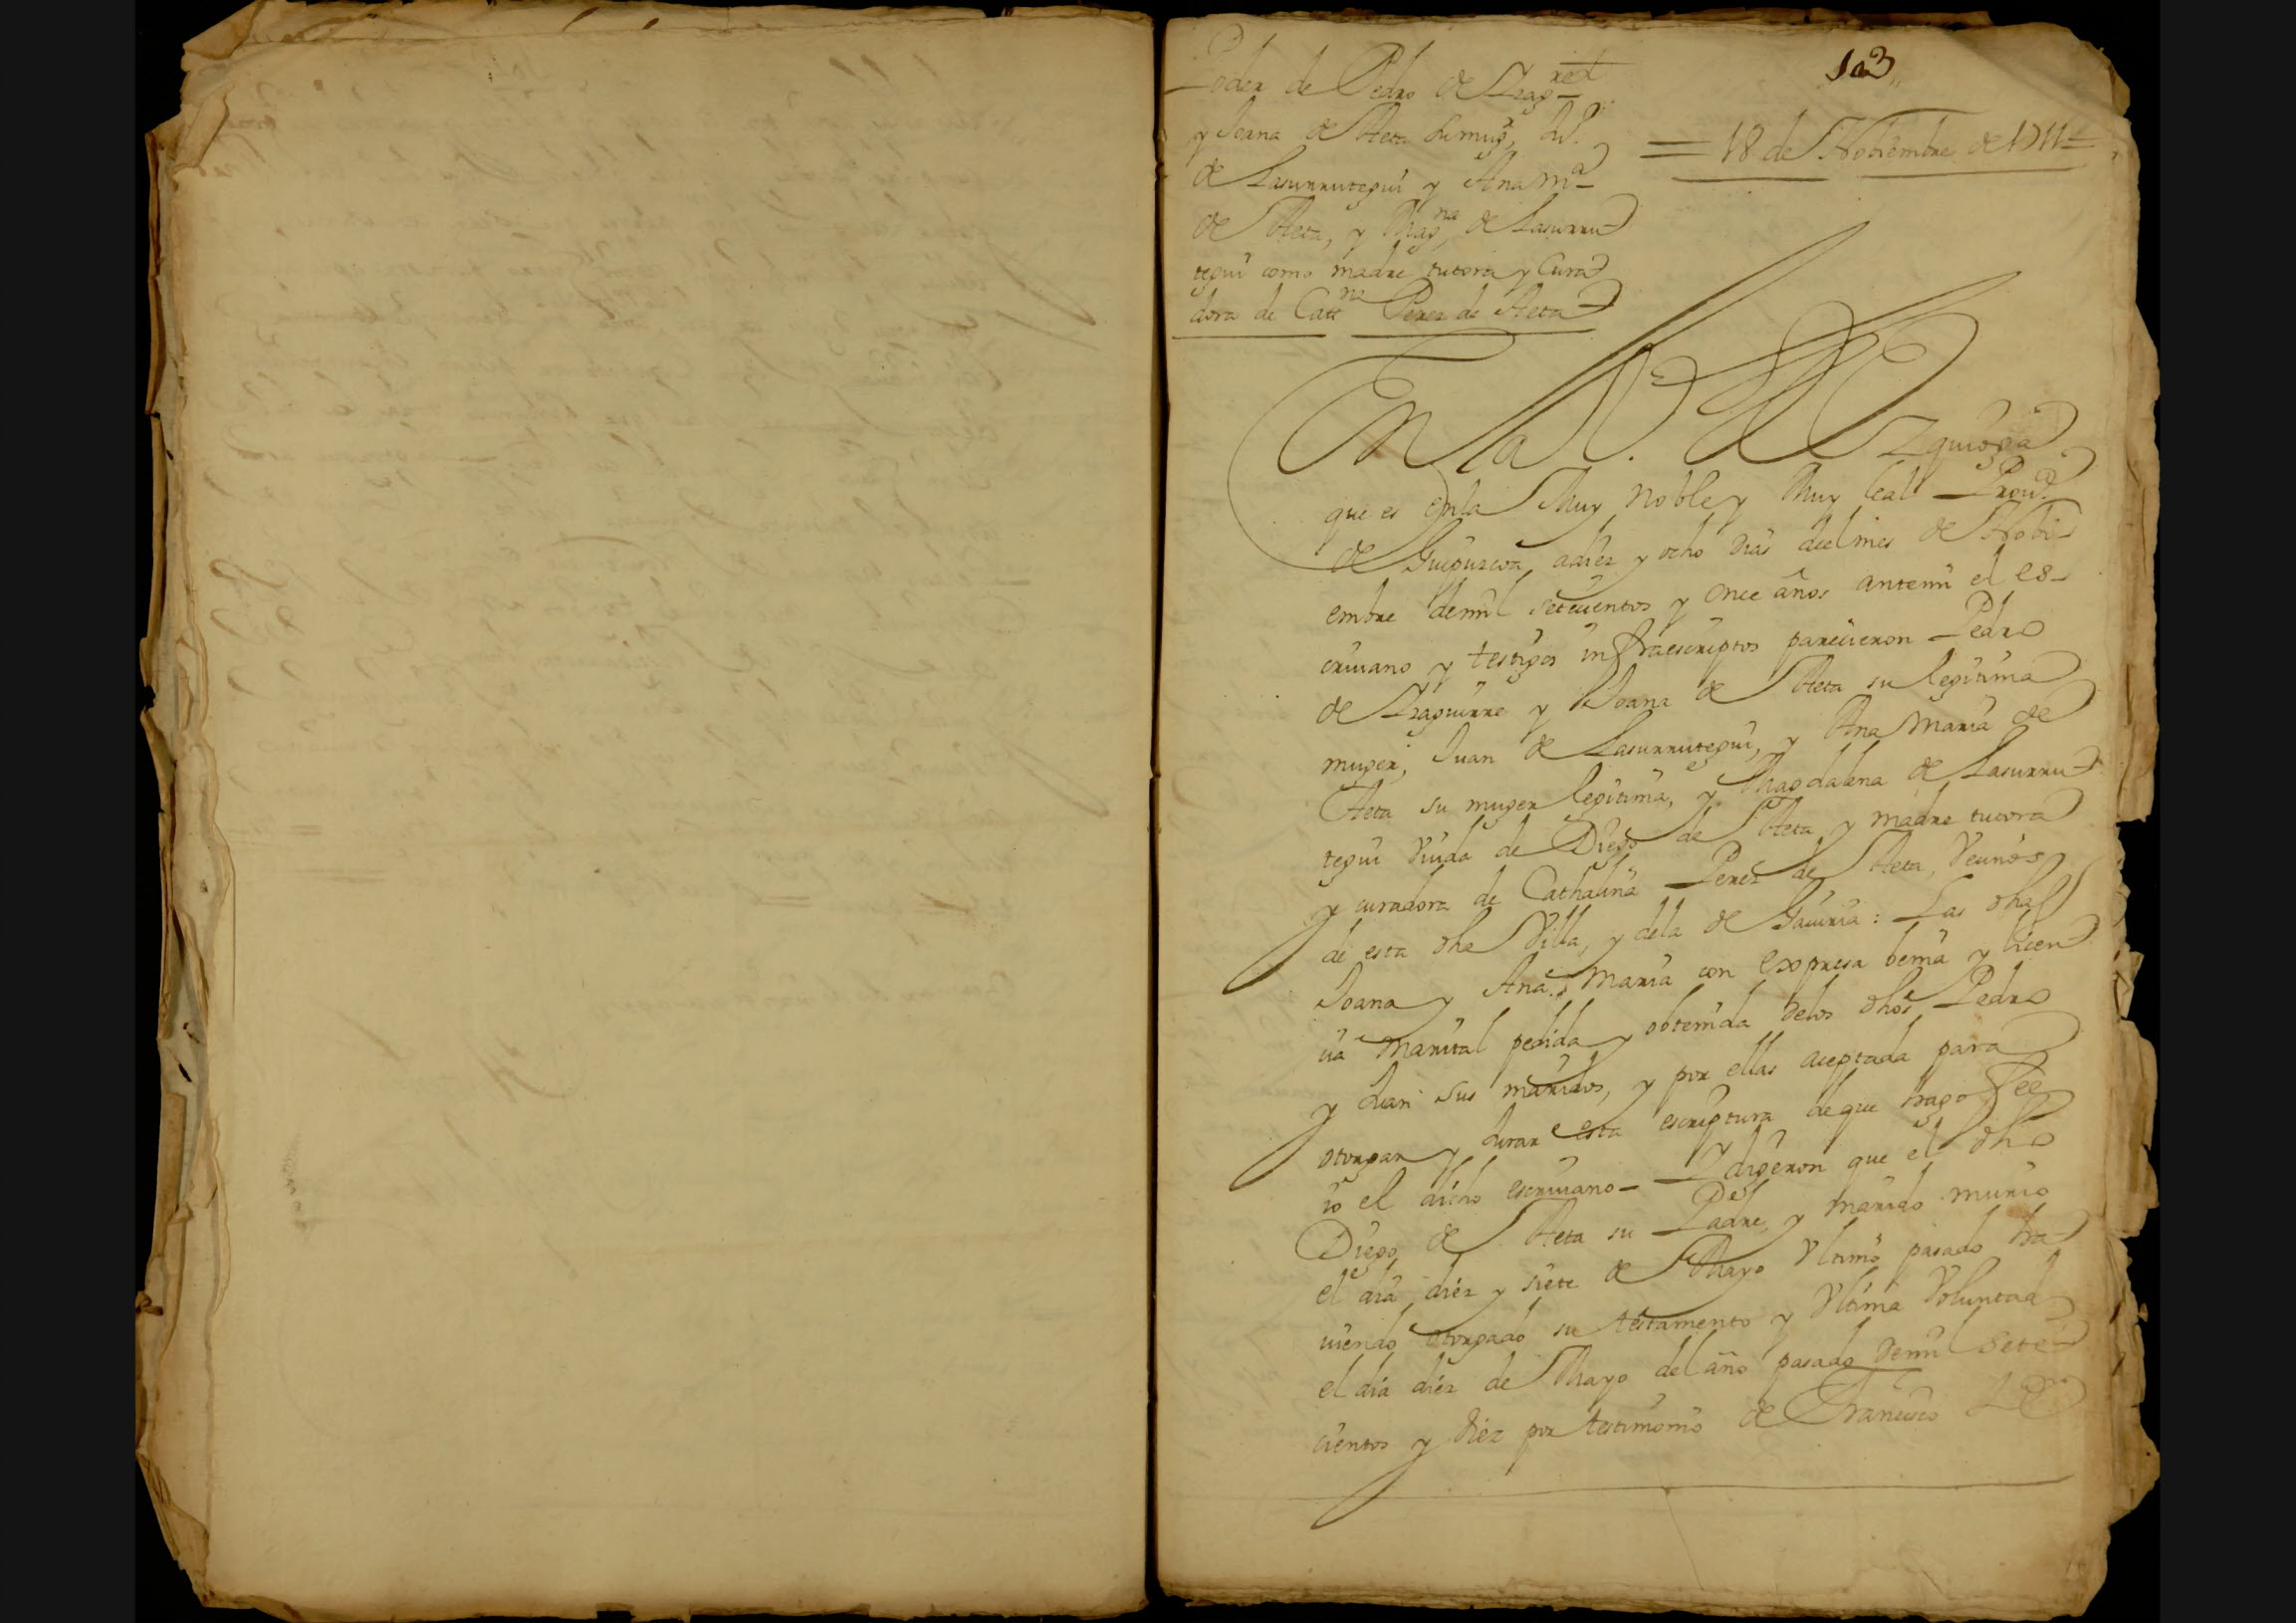 103
Poder de Pedro de Yzag.rre
y Joana de Aeta su mug.r, Ju.o
= 18 de Nobiembre de 1711 =
de Lasurrutegui y Ana M.a
de Aeta, y Mag.na de Lasurru
tegui como madre tutora y Cura
dora de Catt.na Perez de Aeta
En la Villa de Ezquioga
que es en la Muy Noble y Muy leal Prou.a
de Guipuzcoa, a diez y ocho dias del mes de Nobi
embre de mil setecientos y once años ante mi el es-
criuano y testigos infraescriptos parecieron Pedro
de Yzaguirre y Joana de Aeta su legitima
muger, Juan de Lasurrutegui, y Ana Maria de
Aeta su muger legitima, y Magdalena de Lasurru
tegui Viuda de Diego de Aeta y madre tutora
y curadora de Cathalina Perez de Aeta, Vecinos
de esta dha Villa, y de la de Gauiria: Las dhas
Joana y Ana Maria con expresa benia y licen
cia marital pedida y obtenida delos dhos Pedro
y Juan sus maridos, y por ellas aceptada para
otorgar y Jurar esta escriptura de que hago fee
io el dicho escriuano- Y digeron que el dho
Diego de Aeta su Padre, y marido murio
el dia diez y siete de Mayo Vltimo pasado ha
uiendo otorgado su testamento y Vltima Voluntad
el dia diez de Mayo del año pasado de mil sete
cientos y diez por testimonio de Francisco